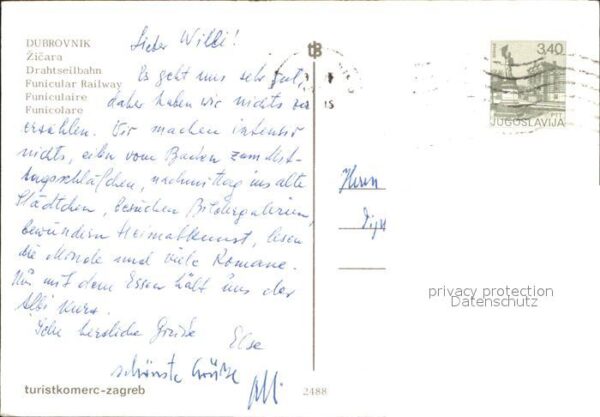 DUBROVNIK
Žičara
Drahtseilbahn
Funicular Railway
Funiculaire
Funicolare
Lieber Willi!
Es geht uns sehr gut,
daher haben wir nichts zu
erzählen. Wir machen intensiv
nichts, eilen vom Baden zum Mit-
tagsschläfchen, nachmittag ins alte
Städtchen, besuchen Bildergalerien,
bewundern Heimatkunst, lesen
die Monde und viele Romane.
Nur mit dem Essen hält uns der
kurz.
Sehr herzliche Grüße
Else
schönste Grüße
turistkomerc-zagreb
2488
tB
3,40
JUGOSLAVIJA
Herrn
privacy protection
Datenschutz